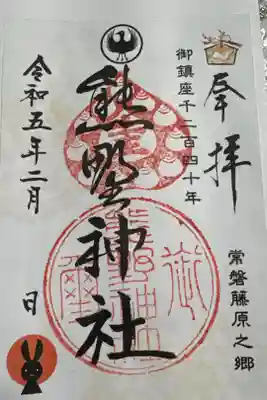 奉拝
御鎮座千二百四十年
常磐藤原之郷
熊野神社
令和五年二月 日